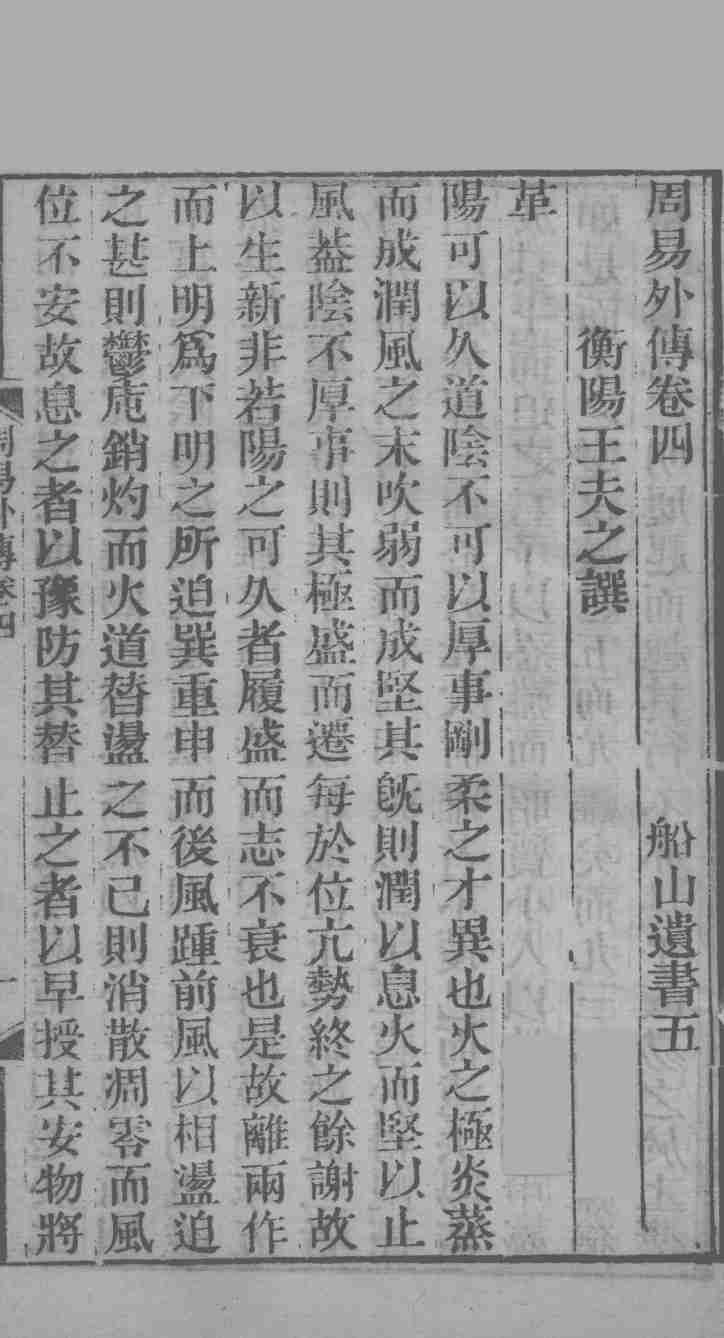 周易外傳卷四　船山遺書五
衡陽王夫之譔
革
陽可以久道陰不可以厚事剛柔之才異也火之極炎蒸
而成潤風之末吹弱而成堅其旣則潤以息火而堅以止
風葢陰不厚事則其極盛而遷每於位亢勢終之餘謝故
以生新非若陽之可久者履盛而志不衰也是故離兩作
而上明爲下明之所迫巽重申而後風踵前風以相盪迫
之甚則鬱庉銷灼而火道替盪之不已則消散凋零而風
位不安故息之者以豫防其替止之者以早授其安物將
周易外傳卷四
一